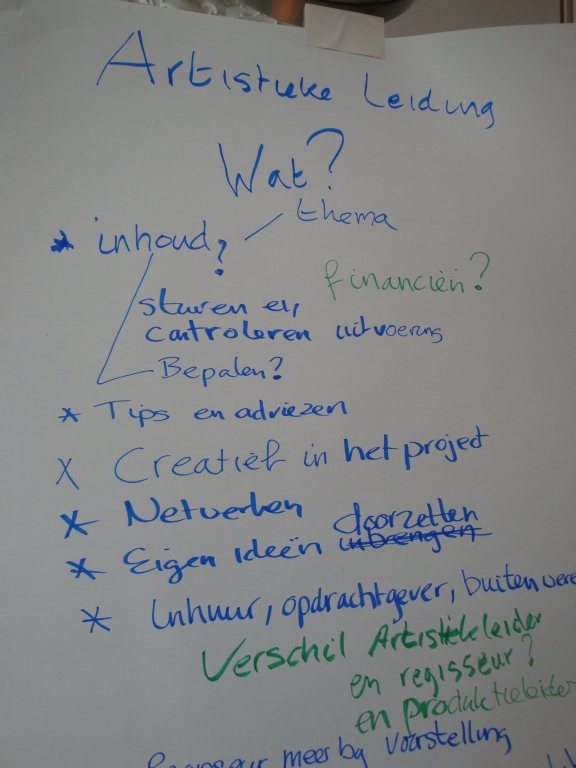 Artistieke Leidung
Wat?
thema
* inhoud?
financiën?
sturen en
controleren uitvoering
Bepalen?
* Tips en adviezen
X Creatief in het project
* Netwerken
doorzetten
* Eigen ideeën inbrengen
* Inhuur, opdrachtgever, buiten
Verschil Artistiekleider
en regisseur?
en produktieleider
meer bij Voorstelling